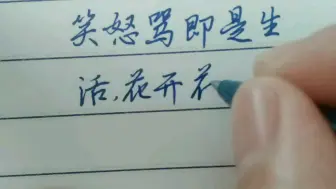 笑怒骂即是生
活,花开花